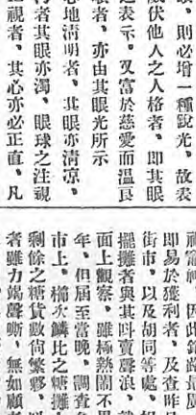 則必增一種銳光。故表
伏他人之人格者、卽其眼
之表示。又富於慈愛而溫良
者、亦由其眼光所示
心地清明者、其眼亦清凉。
者其眼亦濁、眼球之注視
視者、其心亦必正直、凡
因此
卽易於獲利者、及查昨
街市、以及胡同等處、
擺攤者與其叫賣聲浪、
面上觀察、雖極熱鬧不
年、但屆至當晚、調查
市上、櫛次鱗比之糖攤
剩餘之糖貨數尙繁夥、
者雖力竭聲嘶、無如顧